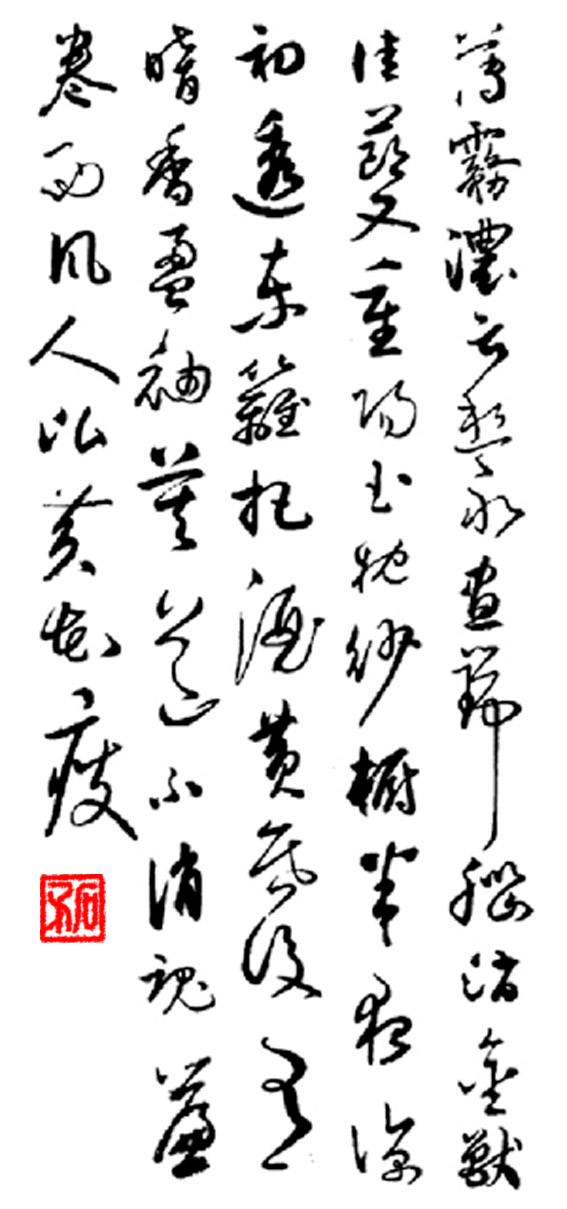 薄霧濃云愁永晝瑞腦消金獸
佳節又重陽玉枕紗櫥半夜涼
初透東籬把酒黃昏後有
暗香盈袖莫道不消魂簾
卷西風人比黃花瘦